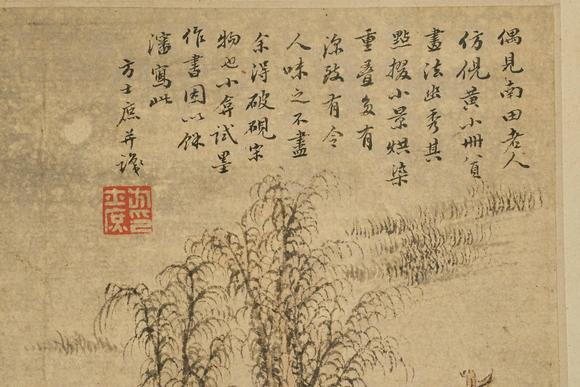 偶見南田老人
仿倪黃小冊頁
畫法幽秀其
點掇小景烘染
重疊多有
深致有令
人味之不盡
余得破硯宋
物也小弇試墨
作書因以餘
瀋寫此
方士庶并識